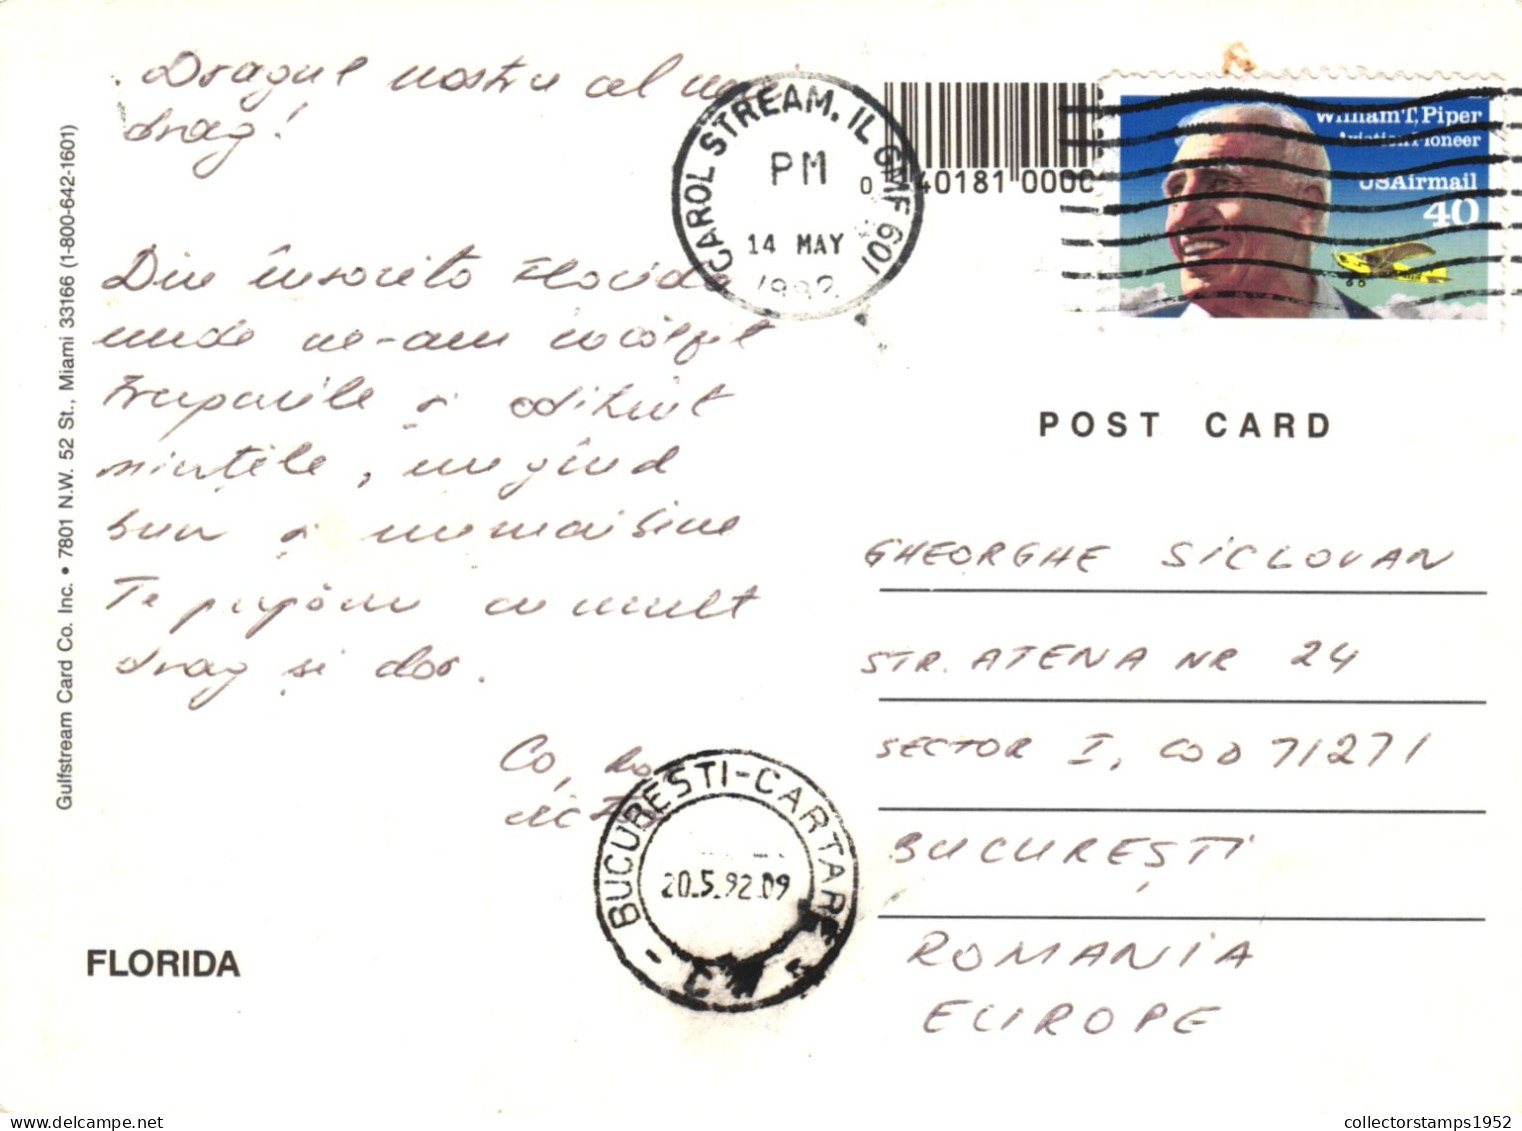 Dragul nostru cel mai
drag!
Din însorita Florida
unde ne-am încălzit
trupurile și odihnit
mințile, un gînd
bun și numai bine
Te pupăm cu mult
drag și dor.
Co,
Gulfstream Card Co. Inc. • 7801 N.W. 52 St., Miami 33166 (1-800-642-1601)
FLORIDA
CAROL STREAM, IL GMF 601
PM
14 MAY
1992
0 40181 000C
William T. Piper
Aviation Pioneer
USAirmail
40
POST CARD
GHEORGHE SICLOVAN
STR. ATENA NR 24
SECTOR I, COD 71271
BUCUREȘTI
ROMANIA
EUROPE
BUCUREȘTI-CARTARE
20.5.92.09
delcampe.net
collectorstamps1952